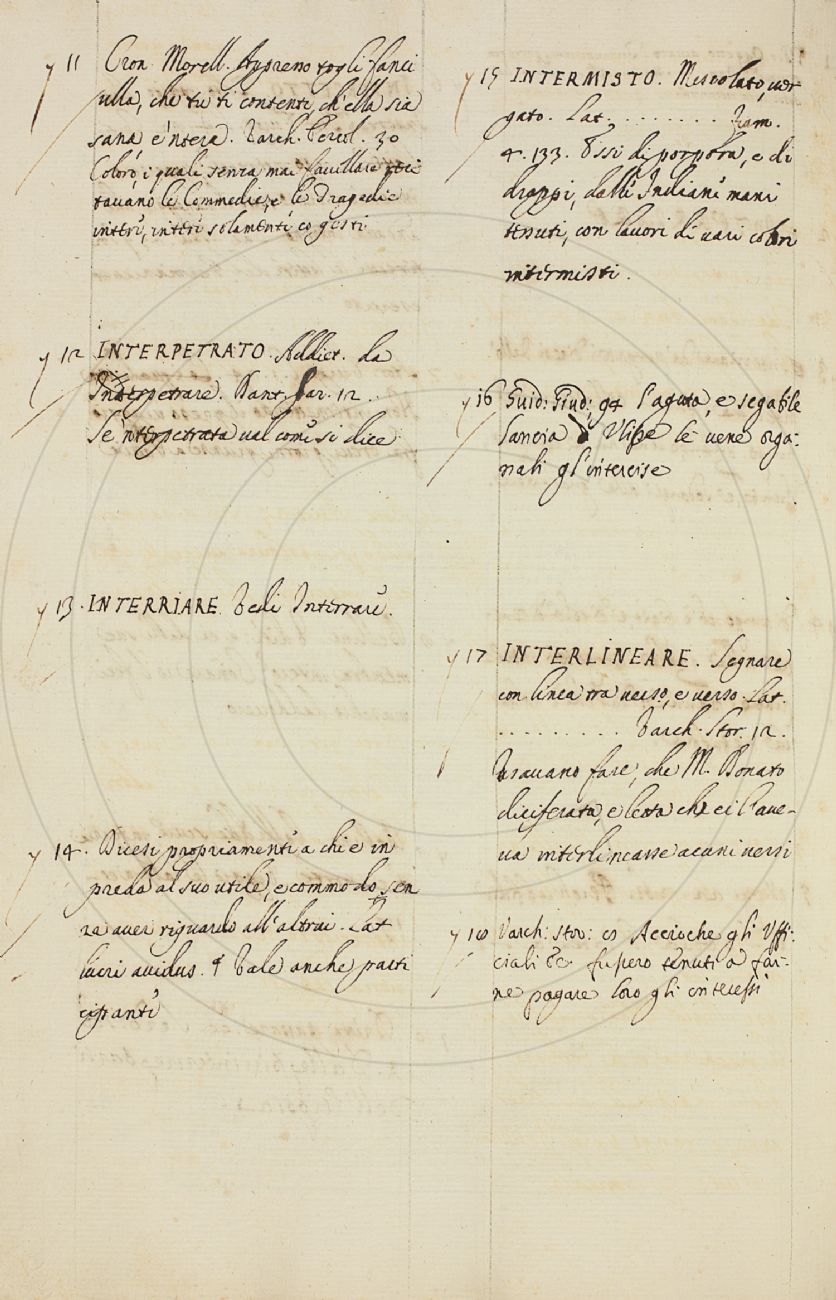 11 Cron. Morell. Appreno togli fanci
ulla, che tu ti contenti, ch'ella sia
sana e 'ntera. Varch. Ercol. 30
Coloro, i quali senza mai favellare reci
tavano le Commedie, e le Tragedie
interi, interi solamenti co gesti
12 INTERPETRATO. Addiet. da
Interpetrare. Dant. Par. 12.
Se 'nterpetrata val come si dice
13. INTERRIARE. Vedi Interrare.
14. Dicesi propriamenti a chi e in
preda al suo utile, e commodo, sen
za aver riguardo all'altrui. Lat
lucri avidus. Vale anche parti
cipanti
15 INTERMISTO. Mescolato, ver
gato. Lat. . . . . . . . .
4. 133. Ossi di porpora, e di
drappi, dalli Indiani mani
tenuti, con lavori di vari colori
intermisti.
16 Guid: Giud: 94 l'aguta, e segabile
lancia d Ulisse le vene orga:
nali gl'intercise
17 INTERLINEARE. Segnare
con linea tra verso, e verso. Lat.
. . . . . . . . . Varch. Stor. 12.
Usavano fare, che M. Donato
diciferata, e letta che ei l'ave-
va interlineasse acuni versi
18 Varch: stor: Accioche gli Uffi:
ciali &c. fupero tenuti a far:
ne pagare loro gli interessi